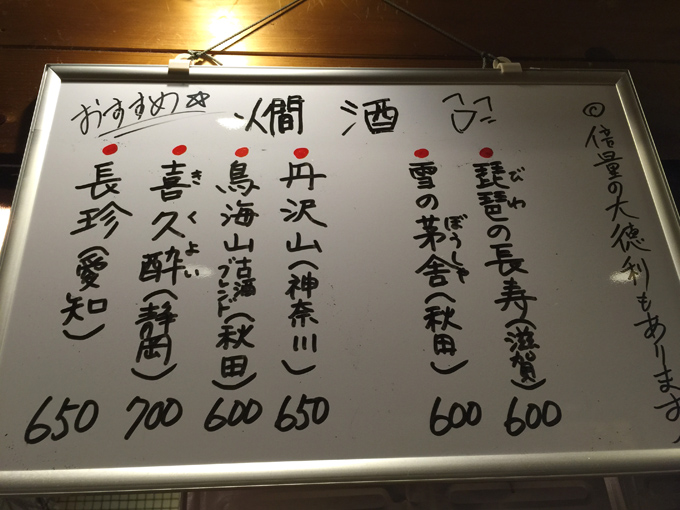 おすすめ☆
燗酒
◎倍量の大徳利もあります
琵琶の長寿(滋賀)
びわ
600
雪の茅舎(秋田)
ぼうしゃ
600
丹沢山(神奈川)
650
鳥海山古酒ブレンド(秋田)
600
喜久酔(静岡)
きくよい
700
長珍(愛知)
650